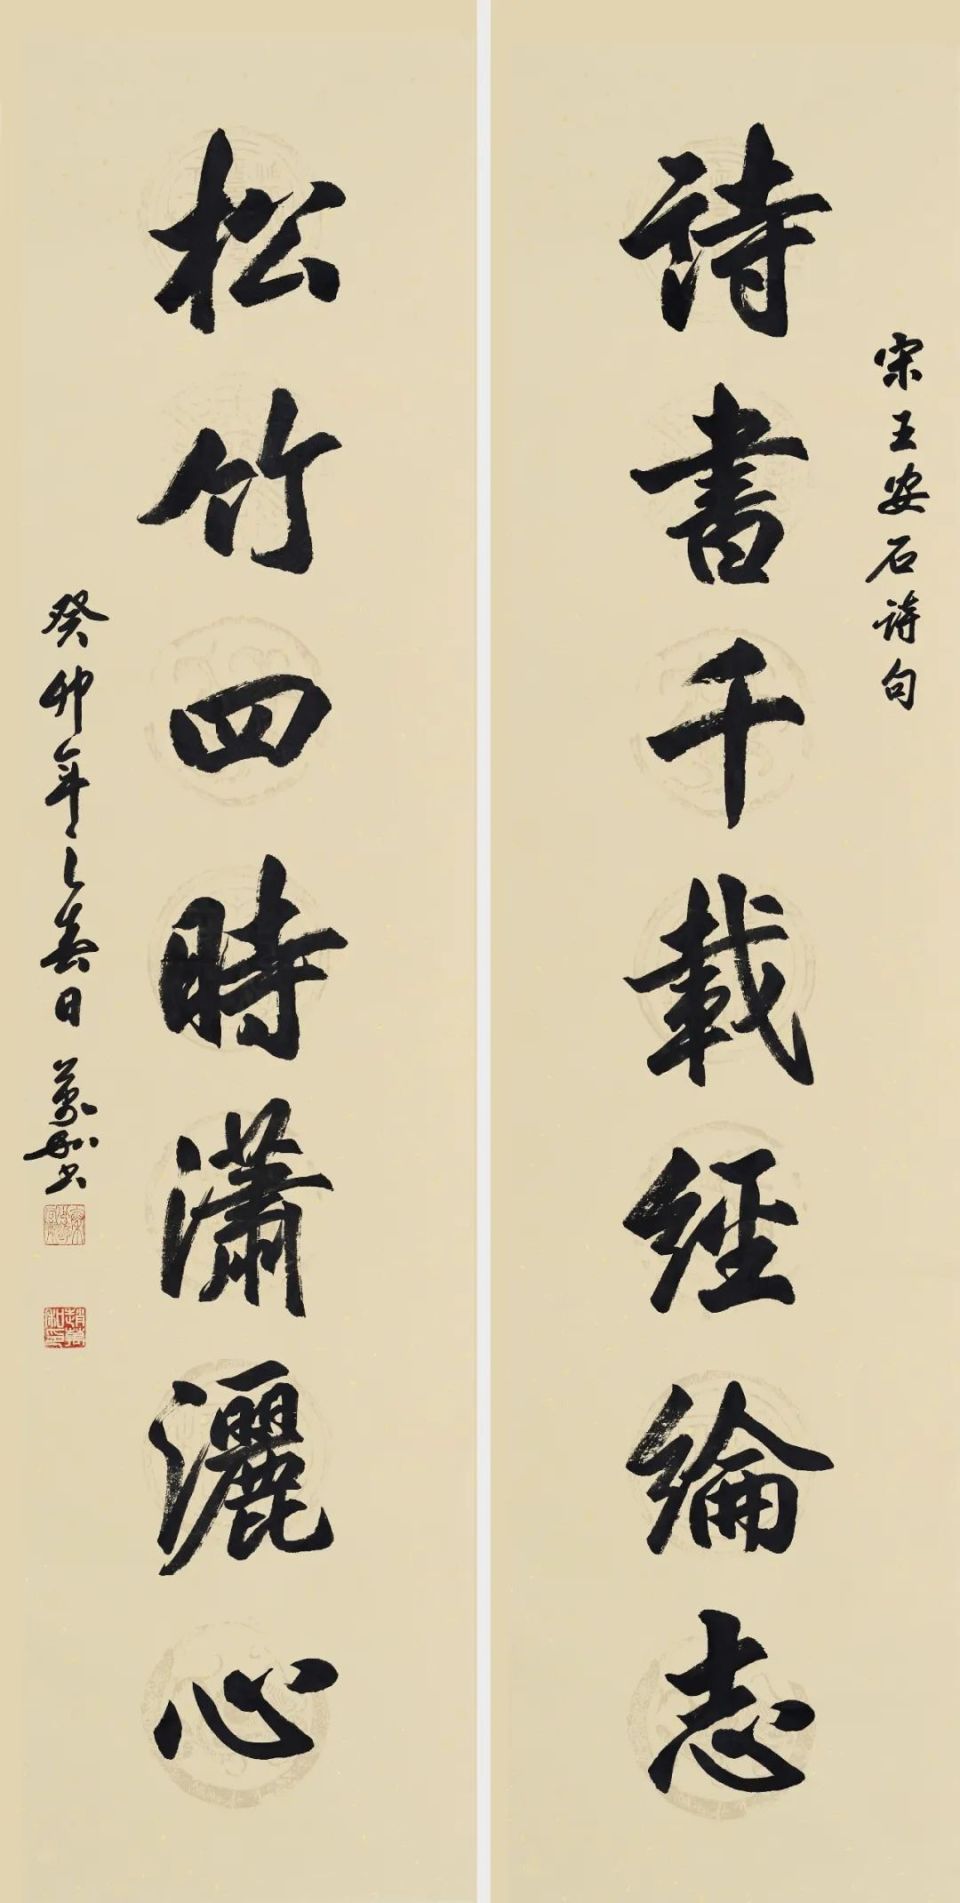 宋王安石詩句
詩書千載經綸志
松竹四時瀟灑心
癸卯年之春日萬和书